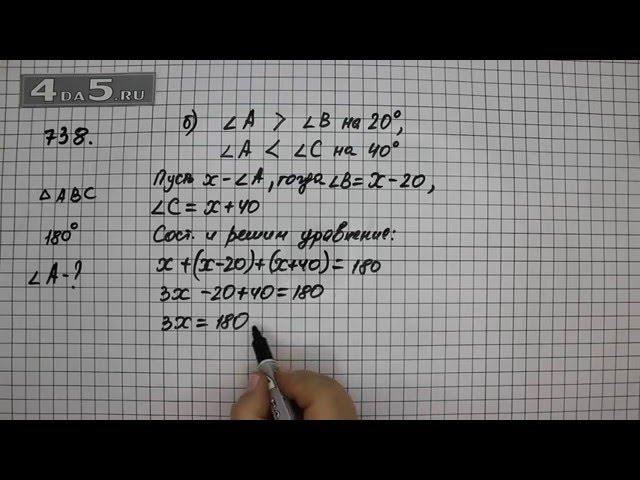 4ДА5.RU
738.
б) ∠A > ∠B на 20°,
∠A < ∠C на 40°
△ABC
180°
∠A-?
Пусть x-∠A, тогда ∠B=x-20,
∠C=x+40
Сост. и решим уравнение:
x+(x-20)+(x+40)=180
3x-20+40=180
3x=180